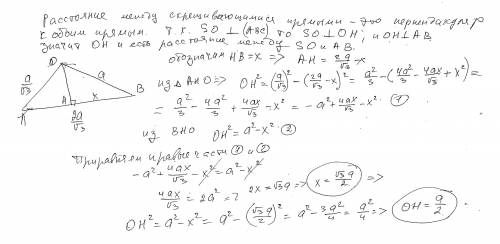 Расстояние между скрещивающимися прямыми – это перпендикуляр
к обоим прямым. Т.к. SO ⊥ (ABC), то SO ⊥ OH, и OH ⊥ AB,
значит OH и есть расстояние между SO и AB.
обозначим HB = x => AH = 2a/√3 - x
из ΔAHO => OH² = (a/√3)² - (2a/√3 - x)² = a²/3 - (4a²/3 - 4ax/√3 + x²) =
= a²/3 - 4a²/3 + 4ax/√3 - x² = -a² + 4ax/√3 - x² ①
из BHO OH² = a² - x² ②
Приравняем правые части ① и ②
-a² + 4ax/√3 - x² = a² - x²
4ax/√3 = 2a² => 2x = √3a => x = √3a/2 =>
OH² = a² - x² = a² - (√3a/2)² = a² - 3a²/4 = a²/4 => OH = a/2
O
a/√3
a
A
x
B
A
2a/√3